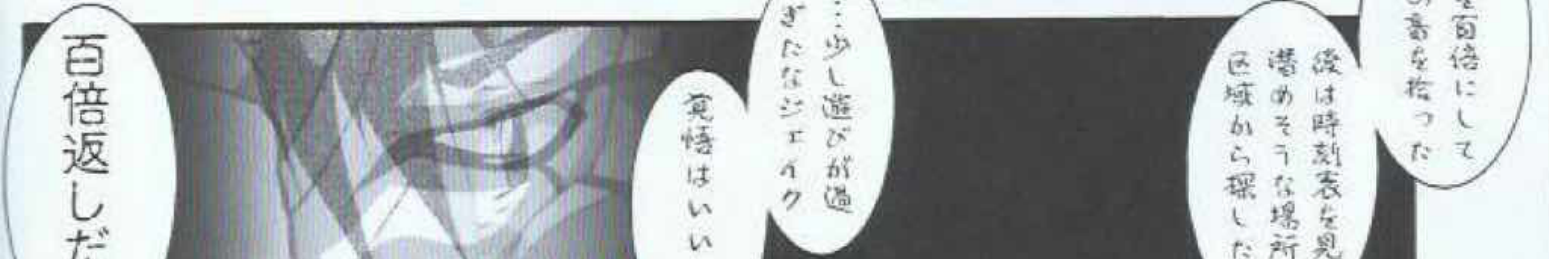 を百倍にして
の音を拾った
後は時刻表を見
潜めそうな場所
区域から探した
…少し遊びが過
ぎたなジェイク
覚悟はいい
百倍返しだ